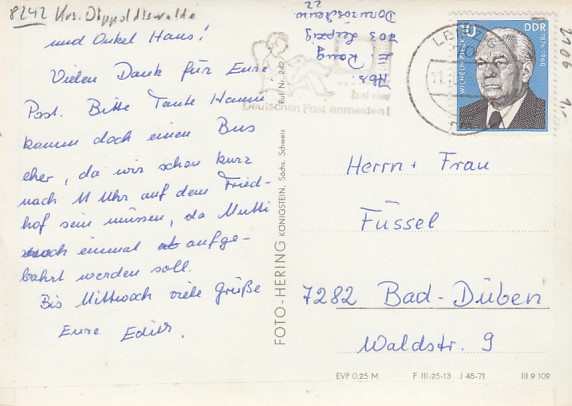 8242 Krs. Dippoldiswalde
und Onkel Hans!
Vielen Dank für Eure
Post. Bitte Tante Hanni
komm doch einen Bus
eher, da wir schon kurz
nach 11 Uhr auf dem Fried-
hof sein müssen, da Mutti
noch einmal aufge-
bahrt werden soll.
Bis Mittwoch viele Grüße
Eure Edith.
Abs
703 Leipzig
22
FOTO-HERING KÖNIGSTEIN, Sächs. Schweiz Ruf Nr. 242
bei der
Deutschen Post anmelden!
LEIPZIG
10 DDR
WILHELM PIECK 1876-1960
2106
Herrn + Frau
Füssel
7282 Bad-Düben
Waldstr. 9
EVP 0,25 M F III-25-13 J 48-71 III 9 109